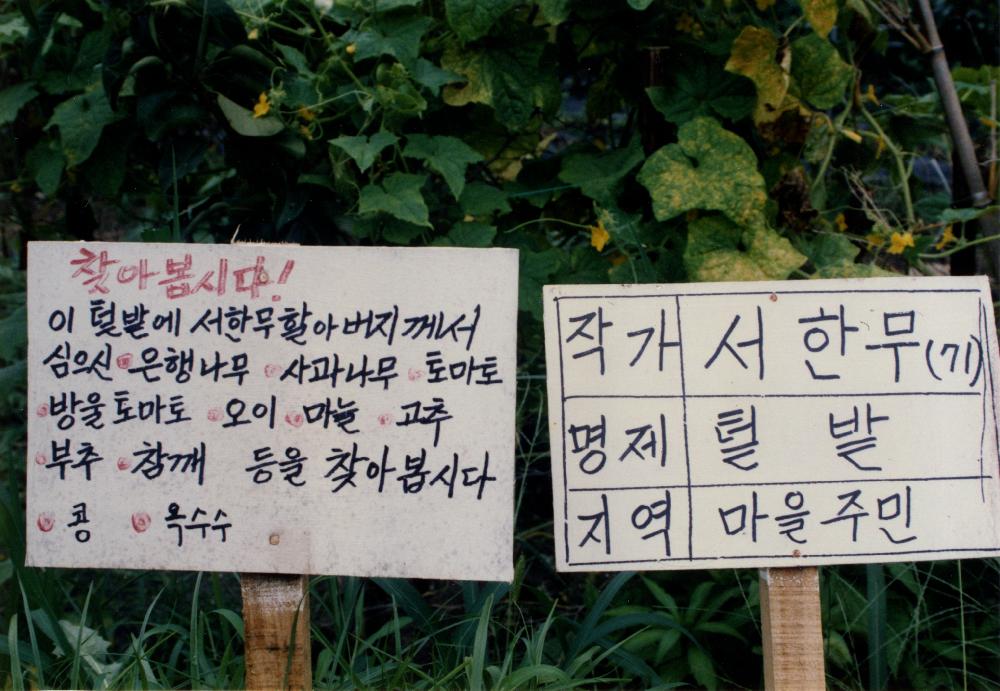 찾아봅시다!
이 텉밭에 서한무할아버지께서
심으신 은행나무 사과나무 토마토
방울토마토 오이 마늘 고추
부추 참깨 등을 찾아봅시다
콩 옥수수
작가 서한무(기)
명제 텉밭
지역 마을주민